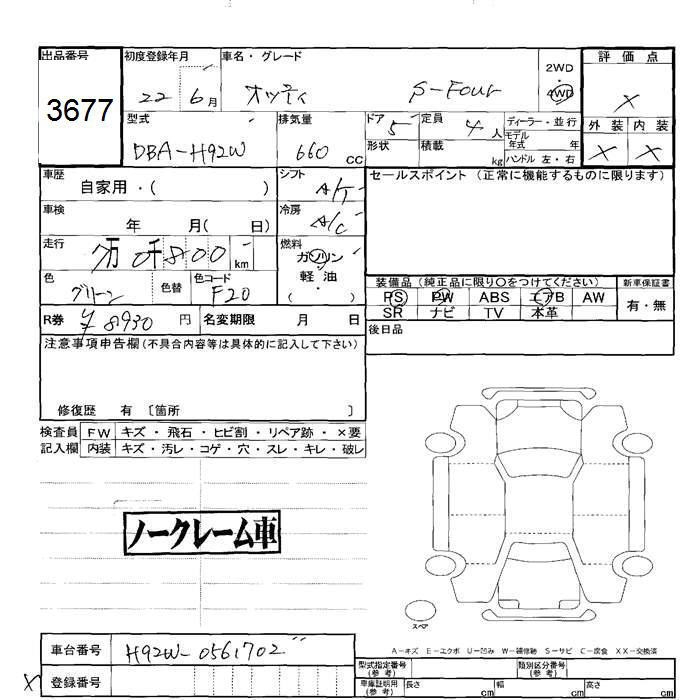 出品番号 初度登録年月 車名・グレード 2WD ・ 4WD 評価点
3677 22 6月 オッティ S-Four X
型式 排気量 ドア 5 定員 4人 ディーラー・並行 外装 内装
DBA-H92W 660 CC 形状 積載 kg モデル年式 年 X X
ハンドル 左・右
車歴 自家用・( ) シフト A/T セールスポイント (正常に機能するものに限ります)
車検 年 月( 日) 冷房 A/C
走行 万 0千800 km 燃料 ガソリン
軽・油
( )
色 グリーン 色替 色コード F20
装備品 (純正品に限り○をつけてください) 新車保証書
PS PW ABS エアB AW 有・無
SR ナビ TV 本革
R券 ¥8930 円 名変期限 月 日 後日品
注意事項申告欄(不具合内容等は具体的に記入して下さい)
修復歴 有 〔箇所 〕
検査員 FW キズ・飛石・ヒビ割・リペア跡・×要
記入欄 内装 キズ・汚レ・コゲ・穴・スレ・キレ・破レ
ノークレーム車
スペア
A-キズ E-エクボ U-凹み W-補修跡 S-サビ C-腐食 XX-交換済
車台番号 H92W-0561702
X 登録番号
型式指定番号(参考) 類別区分番号(参考)
車庫証明用(参考) 長さ cm 幅 cm 高さ cm